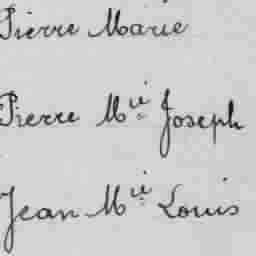 Pierre Marie
Pierre Mie Joseph
Jean-Mie Louis